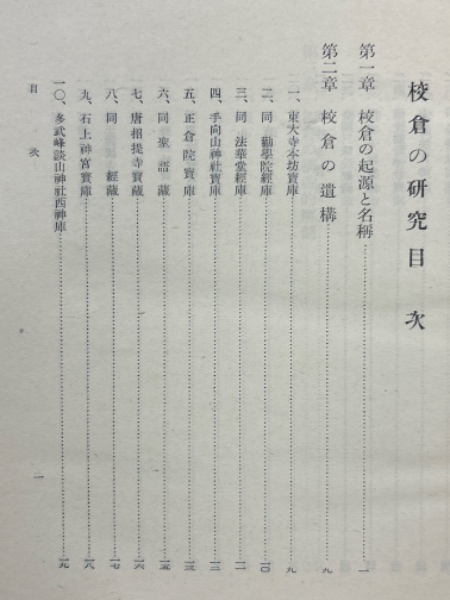 校倉の研究目次
第一章 校倉の起源と名稱……一
第二章 校倉の遺構……九
一、東大寺本坊寶庫……九
二、同 勸學院經庫……一〇
三、同 法華堂經庫……一一
四、手向山神社寶庫……一三
五、正倉院寶庫……一三
六、同 聖語藏……一五
七、唐招提寺寶藏……一六
八、同 經藏……一七
九、石上神宮寶庫……一八
一〇、多武峰談山神社西神庫……一九
目次
一